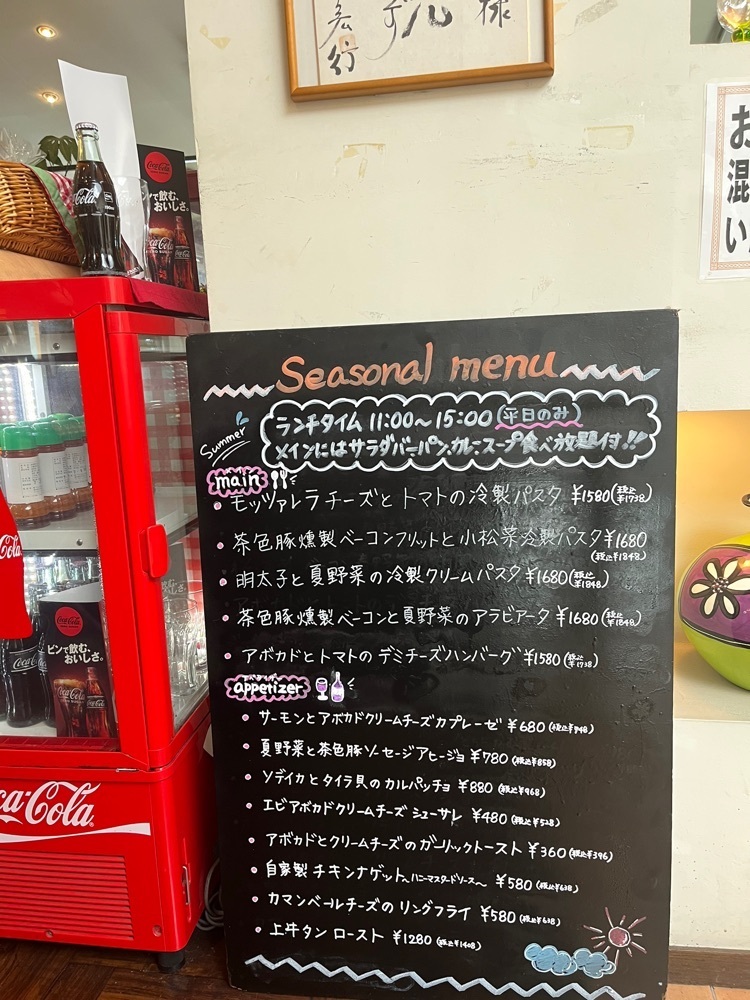 様
宏行
Coca-Cola
ビンで飲む、
おいしさ。
Coca-Cola
お
混
い
Seasonal menu
Summer
ランチタイム 11:00～15:00 (平日のみ)
メインにはサラダバー、パン、カレー、スープ食べ放題付!!
main
モッツァレラチーズとトマトの冷製パスタ ¥1580 (税込¥1738)
茶色豚燻製ベーコンフリットと小松菜冷製パスタ ¥1680
(税込¥1848)
明太子と夏野菜の冷製クリームパスタ ¥1680 (税込¥1848)
茶色豚燻製ベーコンと夏野菜のアラビアータ ¥1680 (税込¥1848)
アボカドとトマトのデミチーズハンバーグ ¥1580 (税込¥1738)
appetizer
サーモンとアボカドクリームチーズカプレーゼ ¥680 (税込¥748)
夏野菜と茶色豚ソーセージアヒージョ ¥780 (税込¥858)
ソデイカとタイラ貝のカルパッチョ ¥880 (税込¥968)
エビアボカドクリームチーズシューサレ ¥480 (税込¥528)
アボカドとクリームチーズのガーリックトースト ¥360 (税込¥396)
自家製チキンナゲット〜ハニーマスタードソース〜 ¥580 (税込¥638)
カマンベールチーズのリングフライ ¥580 (税込¥638)
上牛タンロースト ¥1280 (税込¥1408)
Coca-Cola
Coca-Cola
ビンで飲む、
おいしさ。
Coca-Cola
Coca-Cola